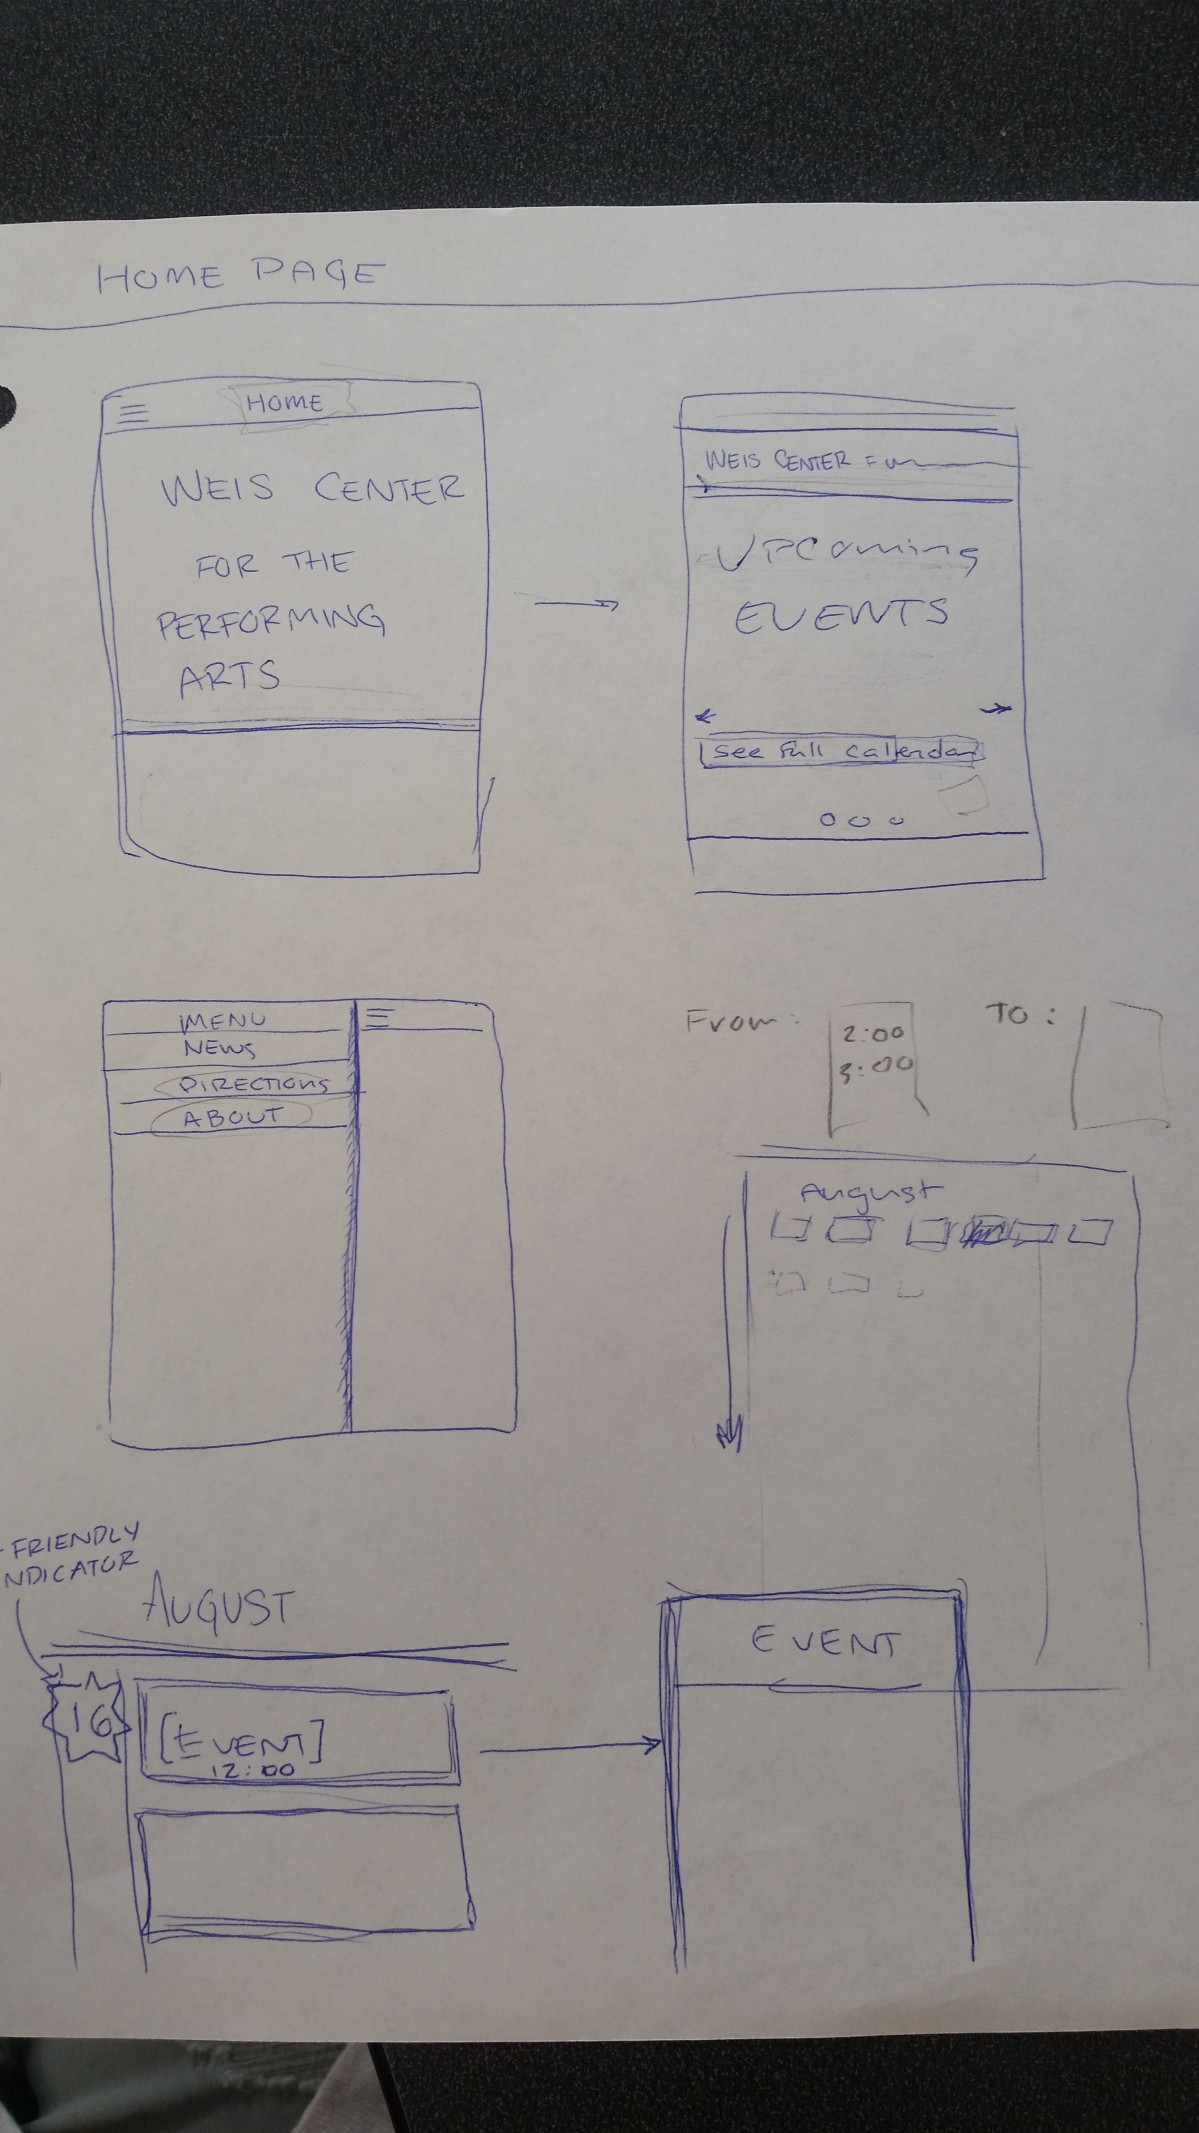 HOME PAGE
HOME
WEIS CENTER
FOR THE
PERFORMING
ARTS
WEIS CENTER
UPComing
EVENTS
See full calendar
MENU
NEWS
DIRECTIONS
ABOUT
From:
2:00
3:00
TO:
August
FRIENDLY
NDICATOR
AUGUST
16
[EVENT]
12:00
EVENT